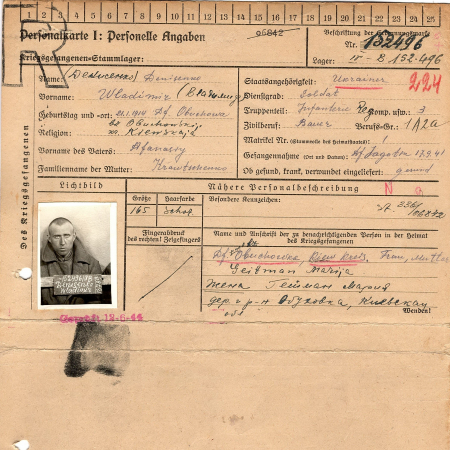 1 2 3 4 5 6 7 8 9 10 11 12 13 14 15 16 17 18 19 20 21 22 23 24 25
R
Personalkarte I: Personelle Angaben
06842
Beschriftung der Erkennungsmarke
Nr. 152496
Kriegsgefangenen-Stammlager:
Lager: IV-B 152496
Des Kriegsgefangenen
Name: (Денисенко) Denisenko
Vorname: Wladimir
Geburtstag und -ort: Df. Obuchowa
Religion:
Vorname des Vaters: Afanassy
Familienname der Mutter: Krawtschenko
Staatsangehörigkeit: Ukrainer
224
Dienstgrad: Soldat
Truppenteil: Infanterie Reg. Komp. usw.: 3
Zivilberuf: Bauer Berufs-Gr.: 1A2a
Matrikel Nr. (Stammrolle des Heimatstaates):
Gefangennahme (Ort und Datum): 17.9.41
Ob gesund, krank, verwundet eingeliefert: gesund
Lichtbild
Nähere Personalbeschreibung
Größe
Haarfarbe
Besondere Kennzeichen:
165
Fingerabdruck
des rechten! Zeigefingers
Name und Anschrift der zu benachrichtigenden Person in der Heimat
des Kriegsgefangenen
Df. Obuchowka
Geitman Marija
Жена Гейман Мария
дер. р-н Обуховка, Киевская
обл
Wenden!